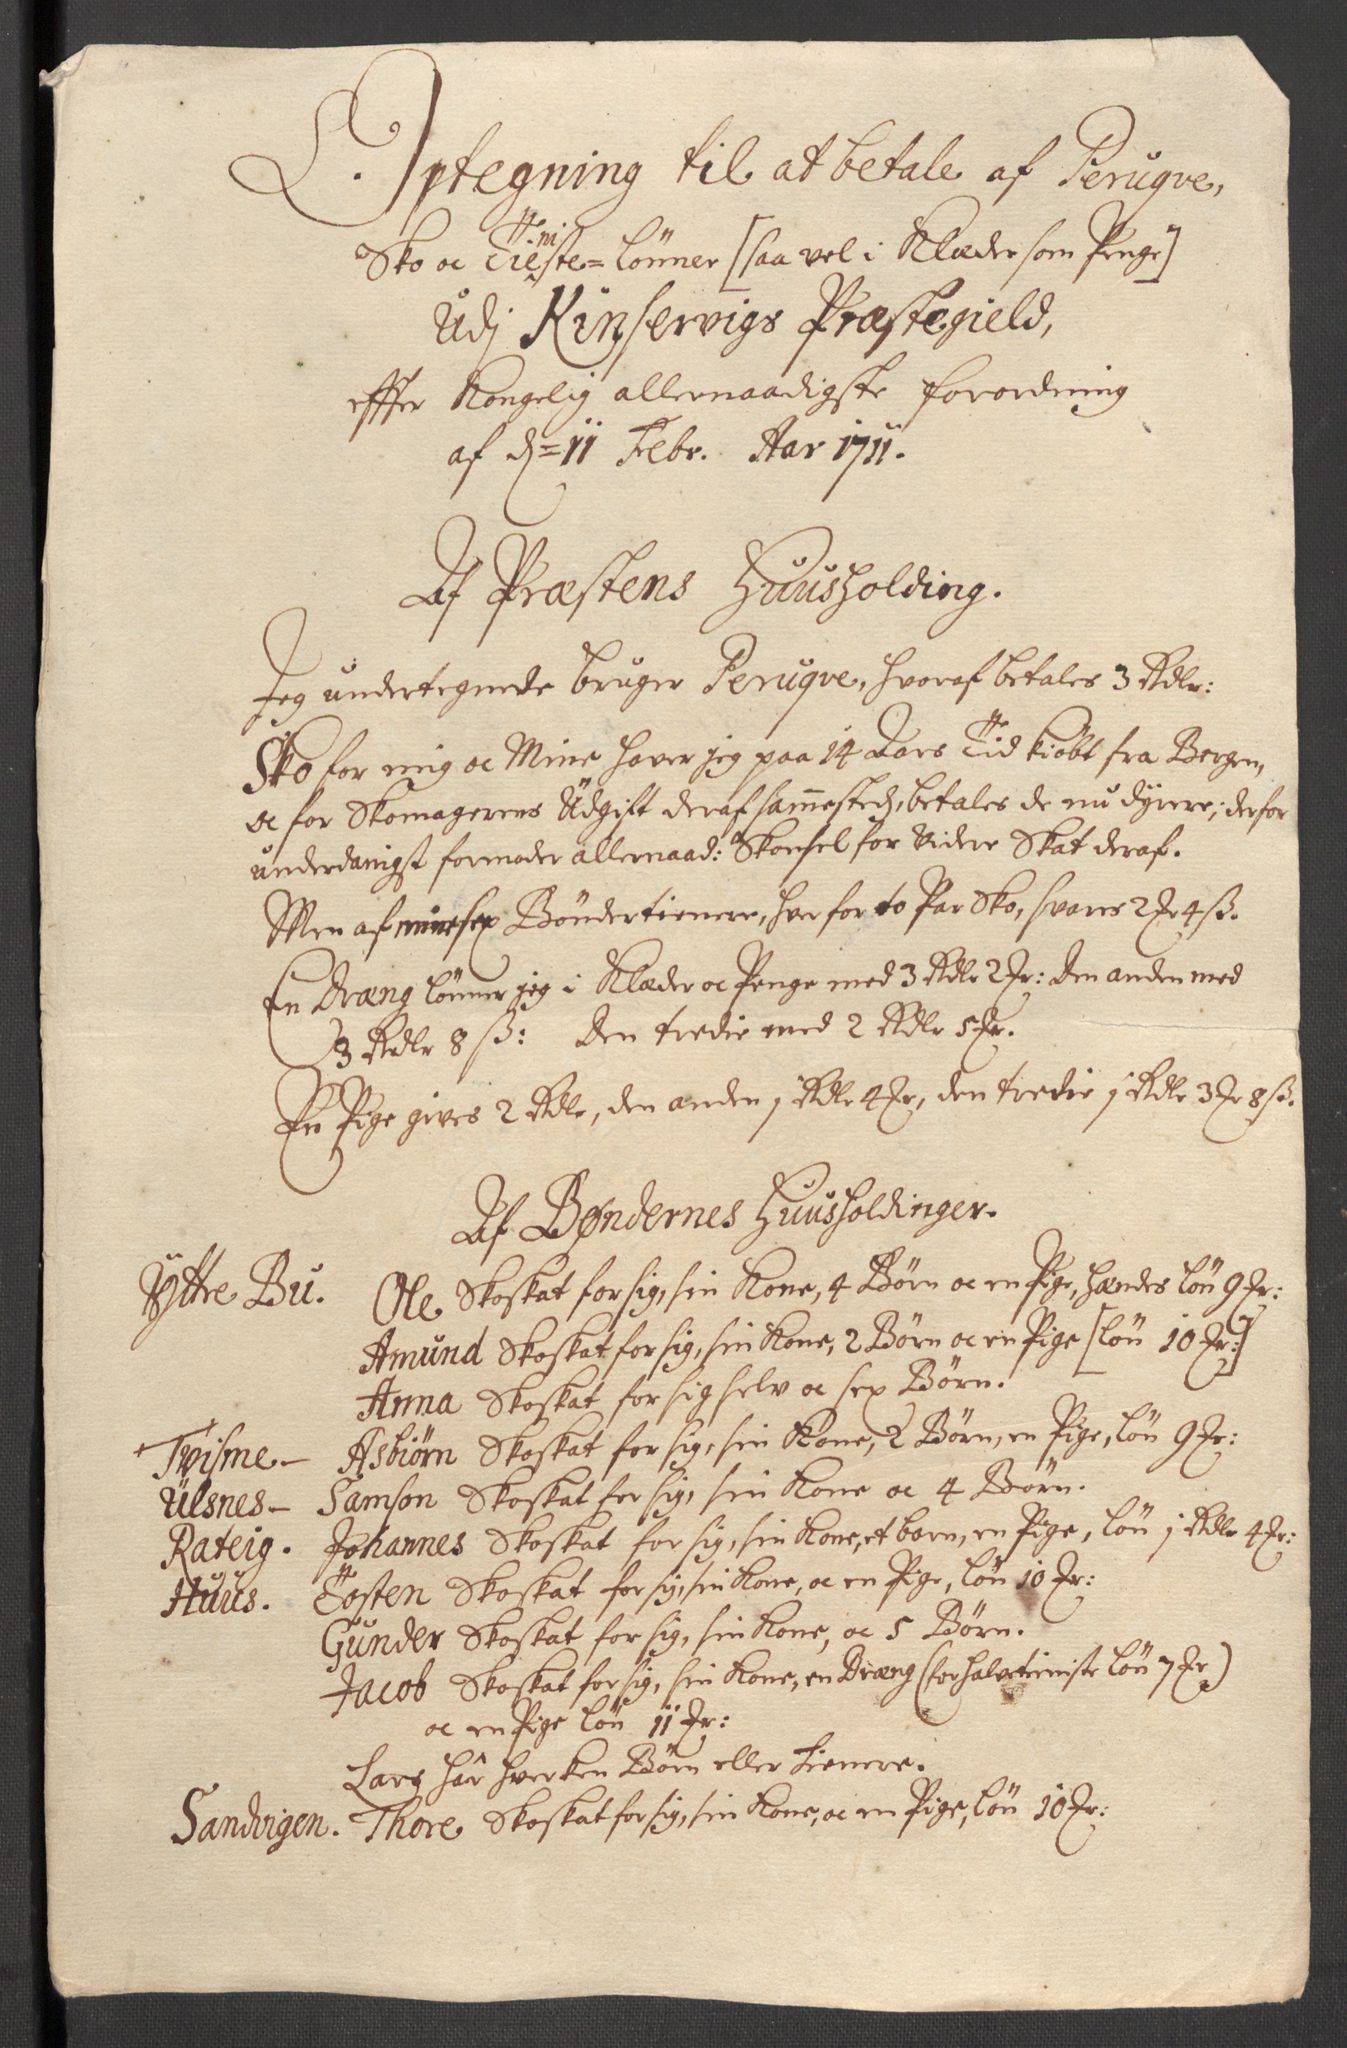 L. Optegning til at betale af Peruqve,
Sko oc Tieniste=Lönner [saa vel i Klæder som Penge]
Udj Kinservigs Præstegield,
effter Kongelig allernaadigste forordning
af d=11 Febr. Aar 1711.
Af Præstens Huusholding.
Jeg undertegnede bruger Peruqve, hvoraf betales 3 Rdlr:
Sko for mig oc Mine haver jeg paa 14 Aars Tid kiöbt fra Bergen,
oc for Skomagerens Udgift deraf sam̄esteds, betales de nu dÿrere; derfor
underdanigst formoder allernaad: Skonsel for videre Skat deraf.
Men af mine sex Bönder tienere, hver for to Par Sko, svares 2 Ir 4 ß.
En Dræng lönner jeg i Klæder oc Penge med 3 Rdlr 2 Ir: Den anden med
3 Rdlr 8 ß: Den tredie med 2 Rdlr 5 Ir.
En Pige gives 2 Rdlr, den anden 1 Rdlr 4 Ir, den tredie 1 Rdlr 3 Ir 8 ß.
Af Bøndernes Huusholdinger.
Yttre Bu. Ole Skoskat for sig, sin Kone, 4 Börn oc en Pige, hændes lön 9 Ir:
Amund Skoskat for sig, sin Kone, 2 Börn oc en Pige [lön 10 Ir:]
Anna Skoskat for sig selv oc sex Börn.
Tvisme - Asbiörn Skoskat for sig, sin Kone, 2 Börn, en Pige, lön 9 Ir:
Ulsnes - Samson Skoskat for sig, sin Kone oc 4 Börn.
Rateig. Johannes Skoskat for sig, sin Kone, et barn, en Pige, lön 1 Rdlr 4 Ir:
Huus. Tosten Skoskat for sig, sin Kone, oc en Pige, lön 10 Ir:
Gunder Skoskat for sig, sin Kone, oc 5 Börn.
Jacob Skoskat for sig, sin Kone, en Dræng (for halvetieniste lön 7 Ir)
oc en Pige lön 11 Ir:
Lars har hverken Börn eller tienere.
Sandvigen. Thore Skoskat for sig, sin Kone, oc en Pige, lön 10 Ir: